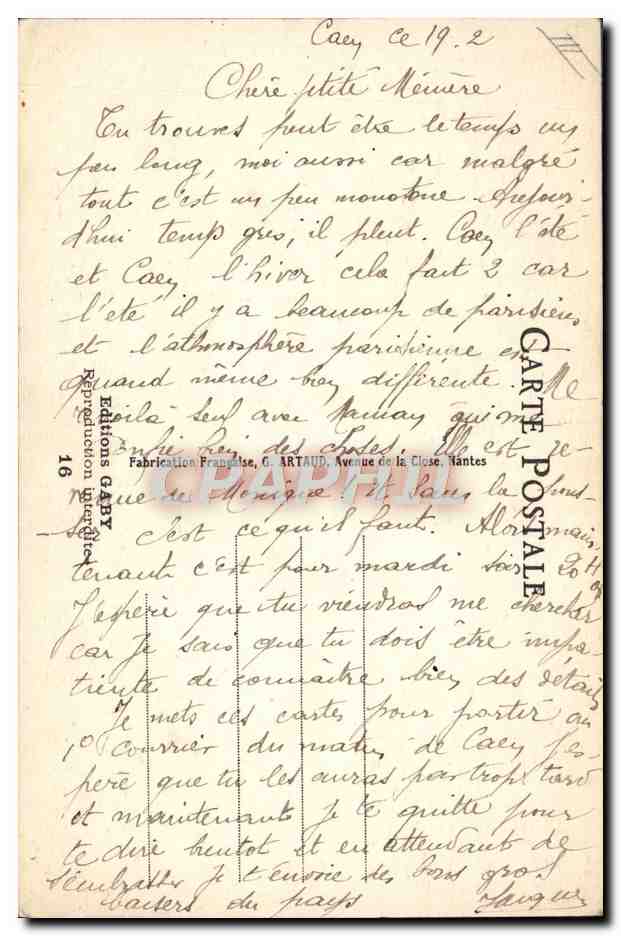 Caen ce 19.2
Chère ptite Mémère
Tu trouves peut être le temps un
peu long, moi aussi car malgré
tout c'est un peu monotone Aujour-
d'hui temps gris, il pleut. Caen l'été
et Caen l'hiver cela fait 2 car
l'été il y a beaucoup de parisiens
et l'athmosphère parisienne est
quand même bien différente. Me
voilà seul avec Maman qui me
confie bien des choses. Elle est re-
nue de Monique. Et sans la
c'est ce qu'il faut. Alors main
tenant c'est pour mardi soir 20 H
J'espère que tu viendras me chercher
car je sais que tu dois être impa-
tiente de connaître bien des détails
Je mets ces cartes pour partir au
1º courrier du matin de Caen J'es-
père que tu les auras pas trop tard
et maintenant je te quitte pour
te dire bientot et en attendant de
s'embrasser je t'envoie des bons gros
baisers du pays Jacques
CARTE POSTALE
Editions GABY
Réproduction interdite
16
Fabrication Française, G. ARTAUD, Avenue de la Close, Nantes
CPAPHIL